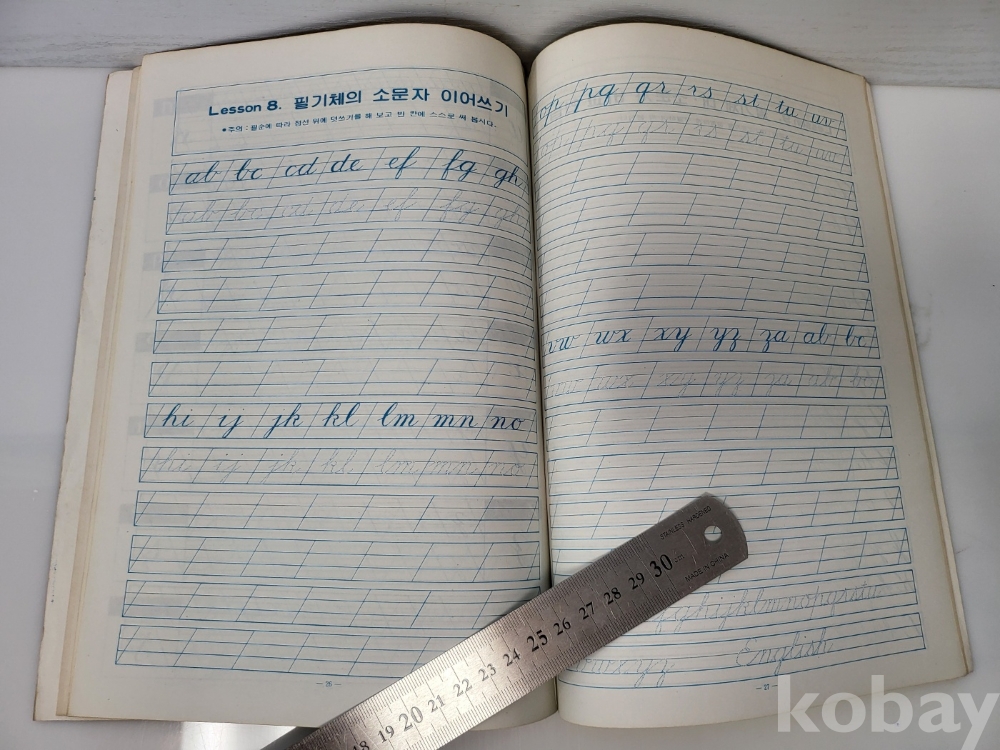 Lesson 8. 필기체의 소문자 이어쓰기
*주의 : 필순에 따라 점선 위에 덧쓰기를 해 보고 빈 칸에 스스로 써 봅시다.
ab bc cd de ef fg gh
ab bc cd de ef fg gh
hi ij jk kl lm mn no
hi ij jk kl lm mn no
— 26 —
op pq qr rs st tu uv
op pq qr rs st tu uv
vw wx xy yz za ab bc
vw wx xy yz za ab bc
ghijklmnopqrstu
wxyz English
— 27 —
STAINLESS HARDENED
MADE IN CHINA
18 19 20 21 22 23 24 25 26 27 28 29 30 cm
kobay